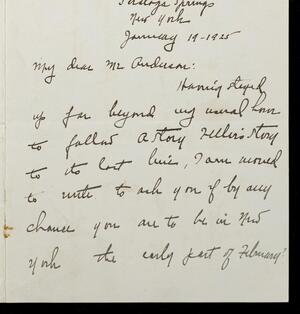 Springs
New York
January 19-1925
My dear Mr Anderson:
Having stayed
up far beyond my usual hour
to follow A Story Teller's Story
to its last line, I am moved
to write to ask you if by any
chance you are to be in New
York the early part of February?